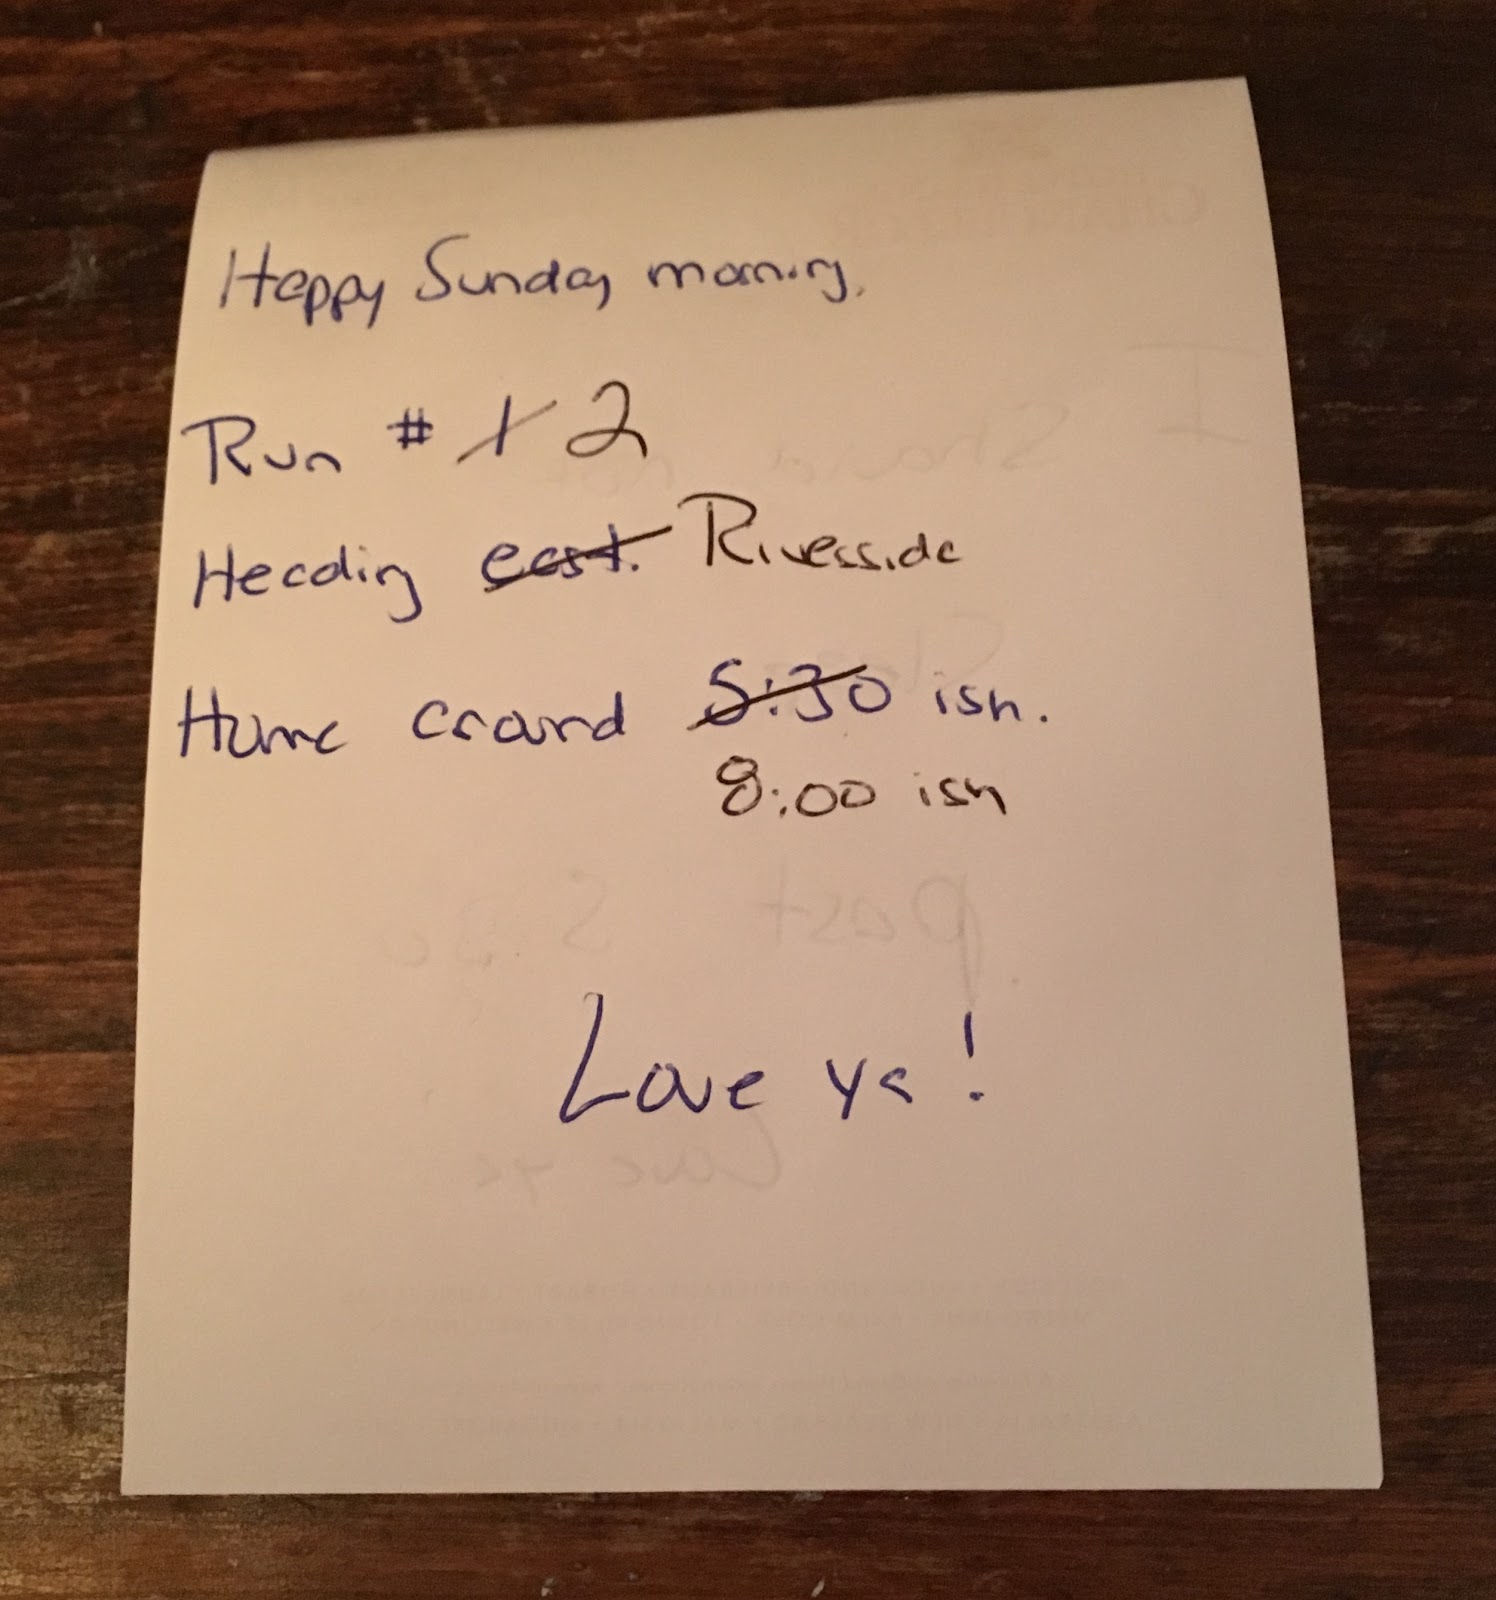 Happy Sunday morning.
Run # 1 2
Heading east. Riverside
Home around 5:30 ish.
8:00 ish
Love ya!